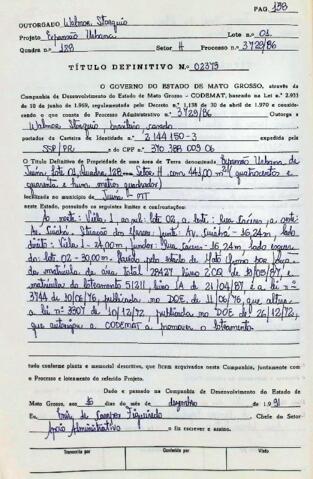 PAG. 138
OUTORGADO Walmor Storquio
Projeto Expansão Urbana Lote n.o 01
Quadra n.o 128 Setor H Processo n.o 3729/86
TÍTULO DEFINITIVO N.o 02373
O GOVERNO DO ESTADO DE MATO GROSSO, através da
Companhia de Desenvolvimento do Estado de Mato Grosso - CODEMAT, baseado na Lei n.o 2.933
de 10 de junho de 1969, regulamentada pelo Decreto n.o 1.138 de 30 de abril de 1970 e conside-
rando o que consta do Processo Administrativo n.o 3729/86 Outorga a
Walmor Storquio, brasileiro, casado
portador da Carteira de Identidade n.o 2 144 150-3 expedida pela
SSP/PR do CPF n.o 370 388 009 06
O Título Definitivo de Propriedade de uma área de Terra denominada Expansão Urbana de
Juína, Lote 01, Quadra 128 Setor H com 441,00 m² (quatrocentos e
quarenta e hum metros quadrados)
localizada no município de Juína - MT
neste Estado, possuindo os seguintes limites e confrontações:
Ao norte: Viela 1, ao sul: lote 02, a leste: Rua , a oeste:
Av. Cuiabá. Situação dos : frente: Av. Cuiabá - 16,24m, lado
direito: Viela 1 - 24,00m, fundos: Rua - 16,24m lado esquer-
do: lote 02 - 30,00m. pelo estado de Mato Grosso
da matrícula de área total 28427 livro 2CQ de 18/09/87 e
matrícula do loteamento 51211, livro 1A de 21/04/87 e a lei n.o
3744 de 10/06/76, publicada no DOE de 11/06/76, que altera
a lei n.o 3307 de 10/12/72, publicada no DOE de 26/12/72,
que autorizou a CODEMAT a promover o loteamento.
tudo conforme planta e memorial descritivo, que ficam arquivados nesta Companhia, juntamente com
o Processo e loteamento do referido Projeto.
Dado e passado na Companhia de Desenvolvimento do Estado de
Mato Grosso, aos 10 dias do mês de dezembro de 1.991
Eu, de Figueiredo Chefe do Setor
Apoio Administrativo o fiz escrever e assino.
Transcrito por Conferido por Visto